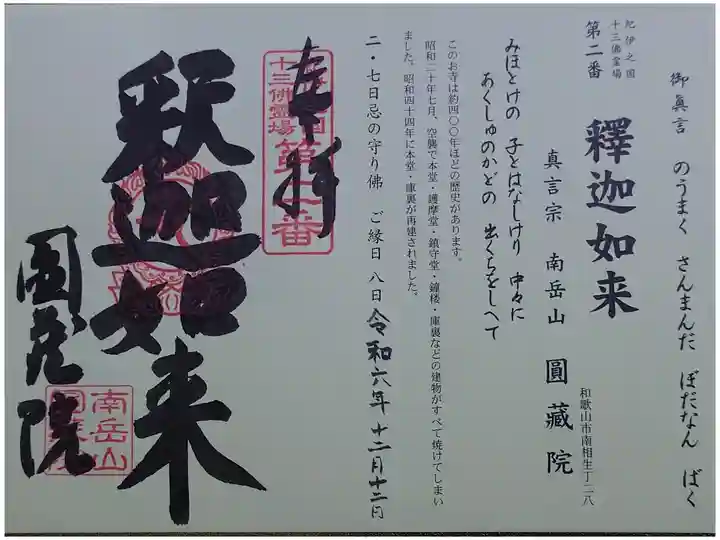 御眞言 のうまく さんまんだ ぼだなん ばく
紀伊之国
十三佛霊場
第二番
釋迦如来
和歌山市南相生丁二八
真言宗 南岳山 圓藏院
みほとけの 子とはなしけり 中々に
あくしゅのかどの 出くちをしへて
このお寺は約四〇〇年ほどの歴史があります。
昭和二十年七月、空襲で本堂・護摩堂・鎮守堂・鐘楼・庫裏などの建物がすべて焼けてしまい
ました。昭和四十四年に本堂・庫裏が再建されました。
二・七日忌の守り佛 ご縁日 八日
令和六年 十二月十二日
奉拝
十三佛霊場
第二番
釈迦如来
圓蔵院
南岳山